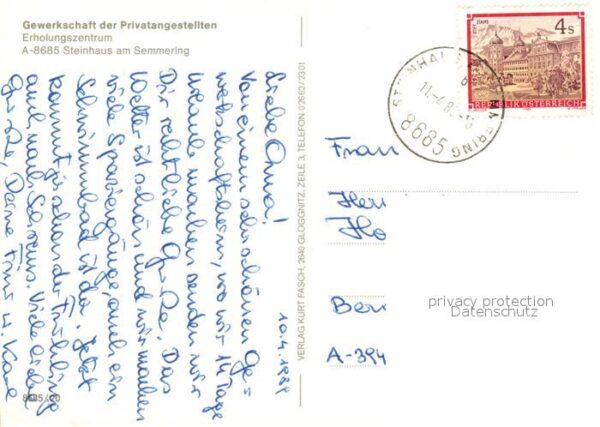 Gewerkschaft der Privatangestellten
Erholungszentrum
A-8685 Steinhaus am Semmering
10.4.1989
Liebe Oma!
Von einem sehr schönen Ge=
werkschaftsheim, wo wir 14 Tage
Urlaub machen senden wir
Dir recht liebe Grüße. Das
Wetter ist schön und wir machen
viele Spaziergänge, auch ein
Schwimmbad ist da. Jetzt
kommt ja schon der Frühling
auch nach Viele liebe
Grüße, Deine
8685/20
VERLAG KURT FASCH, 2640 GLOGGNITZ, ZEILE 3, TELEFON 02662/2301
STIFT STAMS
4 S
REPUBLIK ÖSTERREICH
8685
Frau
Herr
Ho
Ber
A-394
privacy protection
Datenschutz